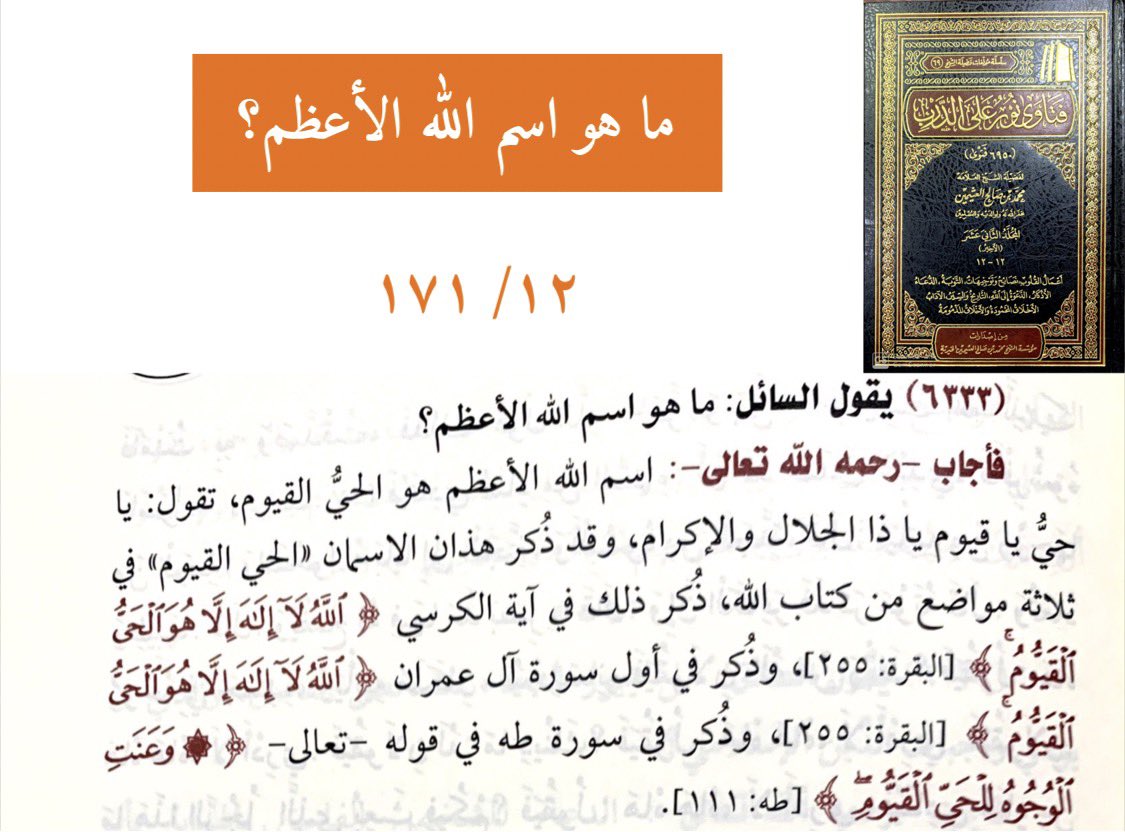 ما هو اسم الله الأعظم؟
١٢/ ١٧١
سلسلة مؤلفات فضيلة الشيخ (٦٩)
فتاوى نور على الدرب
(٦٩٥٠ فتوى)
لفضيلة الشيخ العلامة
محمد بن صالح العثيمين
غفر الله له ولوالديه وللمسلمين
المجلد الثاني عشر
(الأخير)
١٢ - ١٢
أعمال القلوب، نصائح وتوجيهات، التوبة، الدعاء
الأذكار، الدعوة إلى الله، التاريخ والسير، الآداب
الأخلاق المحمودة والأخلاق المذمومة
من إصدارات
مؤسسة الشيخ محمد بن صالح العثيمين الخيرية
(٦٣٣٣) يقول السائل: ما هو اسم الله الأعظم؟
فأجاب -رحمه الله تعالى-: اسم الله الأعظم هو الحيُّ القيوم، تقول: يا
حيُّ يا قيوم يا ذا الجلال والإكرام، وقد ذُكر هذان الاسمان «الحي القيوم» في
ثلاثة مواضع من كتاب الله، ذُكر ذلك في آية الكرسي ﴿ ٱللَّهُ لَآ إِلَٰهَ إِلَّا هُوَ ٱلْحَىُّ
ٱلْقَيُّومُ ۚ ﴾ [البقرة: ٢٥٥]، وذُكر في أول سورة آل عمران ﴿ ٱللَّهُ لَآ إِلَٰهَ إِلَّا هُوَ ٱلْحَىُّ
ٱلْقَيُّومُ ۚ ﴾ [البقرة: ٢٥٥]، وذُكر في سورة طه في قوله -تعالى- ﴿ ۞ وَعَنَتِ
ٱلْوُجُوهُ لِلْحَىِّ ٱلْقَيُّومِ ۖ ﴾ [طه: ١١١].